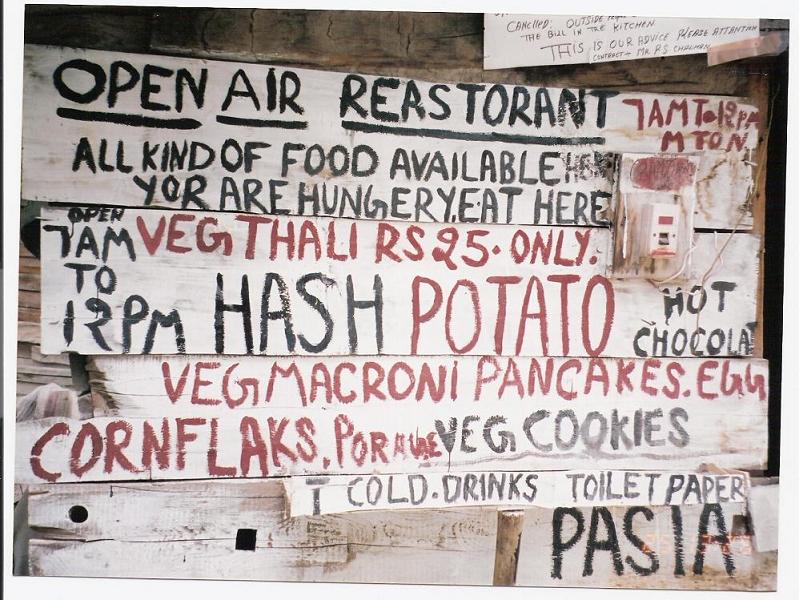 CANCLLED: OUTSIDE
THE BILL IN THE KITCHEN
THIS IS OUR ADVICE PLEASE ATTANTAN
CONTRACT - MR. P.S CHAUHAN
OPEN AIR REASTORANT
7AM To 12PM
MTON
ALL KIND OF FOOD AVAILABLE HERE
YOR ARE HUNGERY.EAT HERE
OPEN
7AM
TO
12PM
VEG THALI RS 25. ONLY.
HASH POTATO
HOT
CHOCOLAT
VEG MACRONI PANCAKES. EGG
CORNFLAKS. PORAGE VEG COOKIES
T COLD. DRINKS TOILET PAPER
PASTA